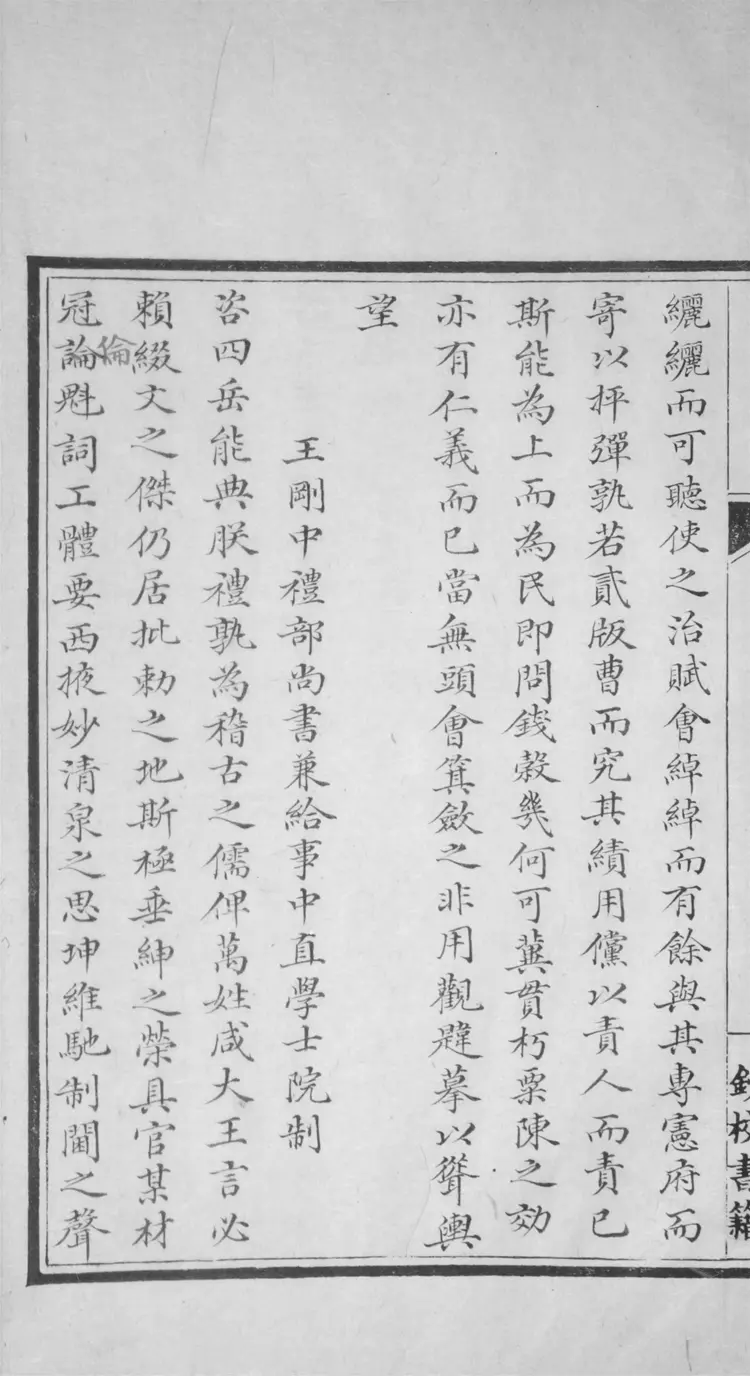 纚纚而可聽使之治賦會綽綽而有餘與其專憲府而
寄以抨彈孰若貳版曹而究其績用儻以責人而責已
斯能為上而為民即問錢穀幾何可冀貫朽粟陳之効
亦有仁義而已當無頭會箕斂之非用觀韙摹以聳輿
望
王剛中禮部尚書兼給事中直學士院制
咨四岳能典朕禮孰為稽古之儒俾萬姓咸大王言必
賴綴文之傑仍居批勅之地斯極垂紳之榮具官某材
冠論魁詞工體要西掖妙清泉之思坤維馳制閫之聲
倫
校書籍